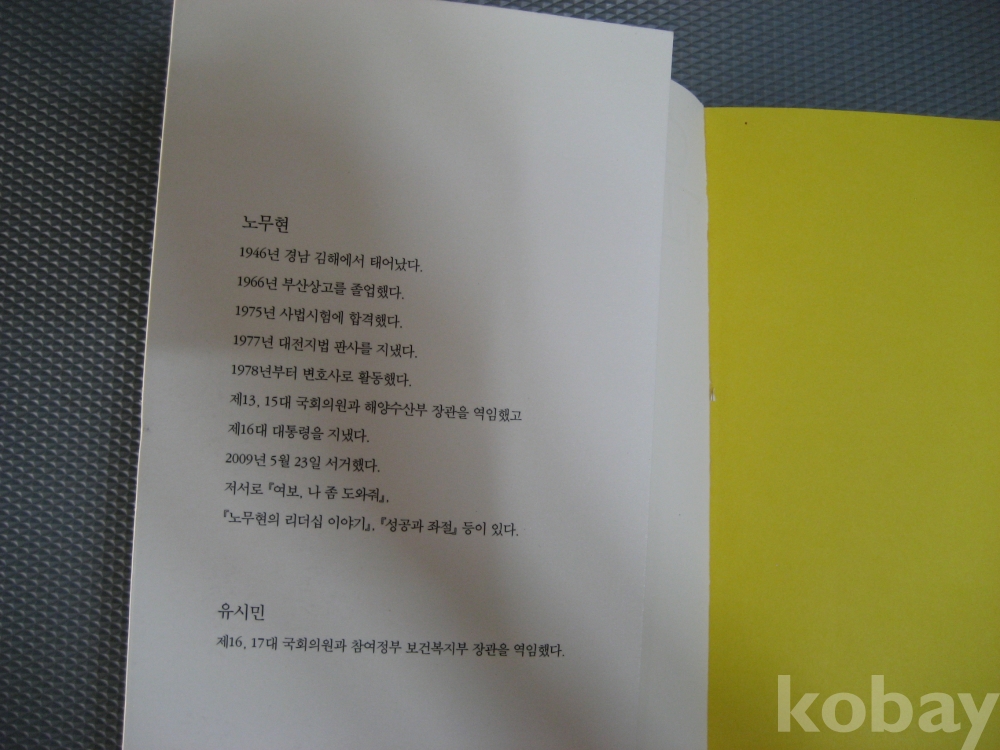 노무현
1946년 경남 김해에서 태어났다.
1966년 부산상고를 졸업했다.
1975년 사법시험에 합격했다.
1977년 대전지법 판사를 지냈다.
1978년부터 변호사로 활동했다.
제13, 15대 국회의원과 해양수산부 장관을 역임했고
제16대 대통령을 지냈다.
2009년 5월 23일 서거했다.
저서로 『여보, 나 좀 도와줘』,
『노무현의 리더십 이야기』, 『성공과 좌절』 등이 있다.
유시민
제16, 17대 국회의원과 참여정부 보건복지부 장관을 역임했다.
kobay